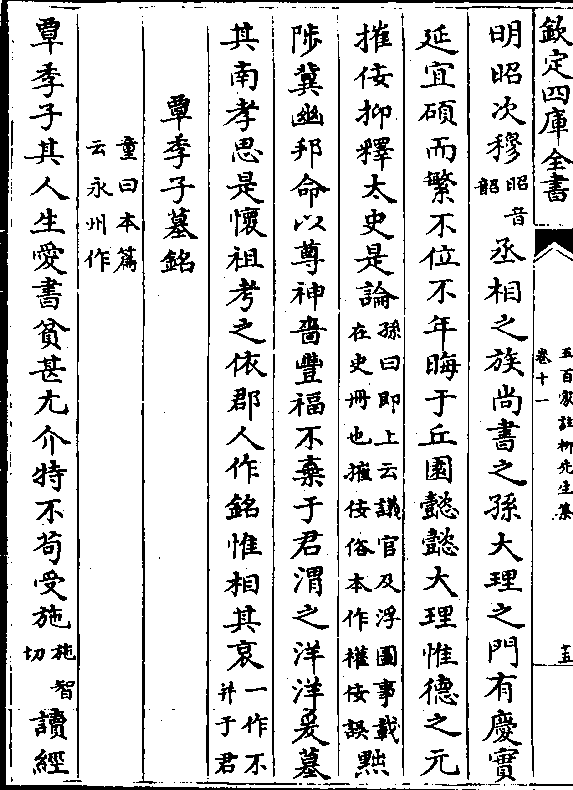 欽定四庫全書
五百家註柳先生集
卷十一
十五
明昭次穆昭音韶丞相之族尚書之孫大理之門有慶實
延宜碩而繁不位不年晦于丘園懿懿大理惟德之元
摧佞抑釋太史是論孫曰即上云議官及浮圖事載在史册也摧佞俗本作權佞誤黜
陟冀幽邦命以尊神嗇豐福不棄于君渭之洋洋爰墓
其南孝思是懷祖考之依郡人作銘惟相其哀一作不幷于君
覃季子墓銘
童曰本篇云永州作
覃季子其人生愛書貧甚尤介特不苟受施施智切讀經